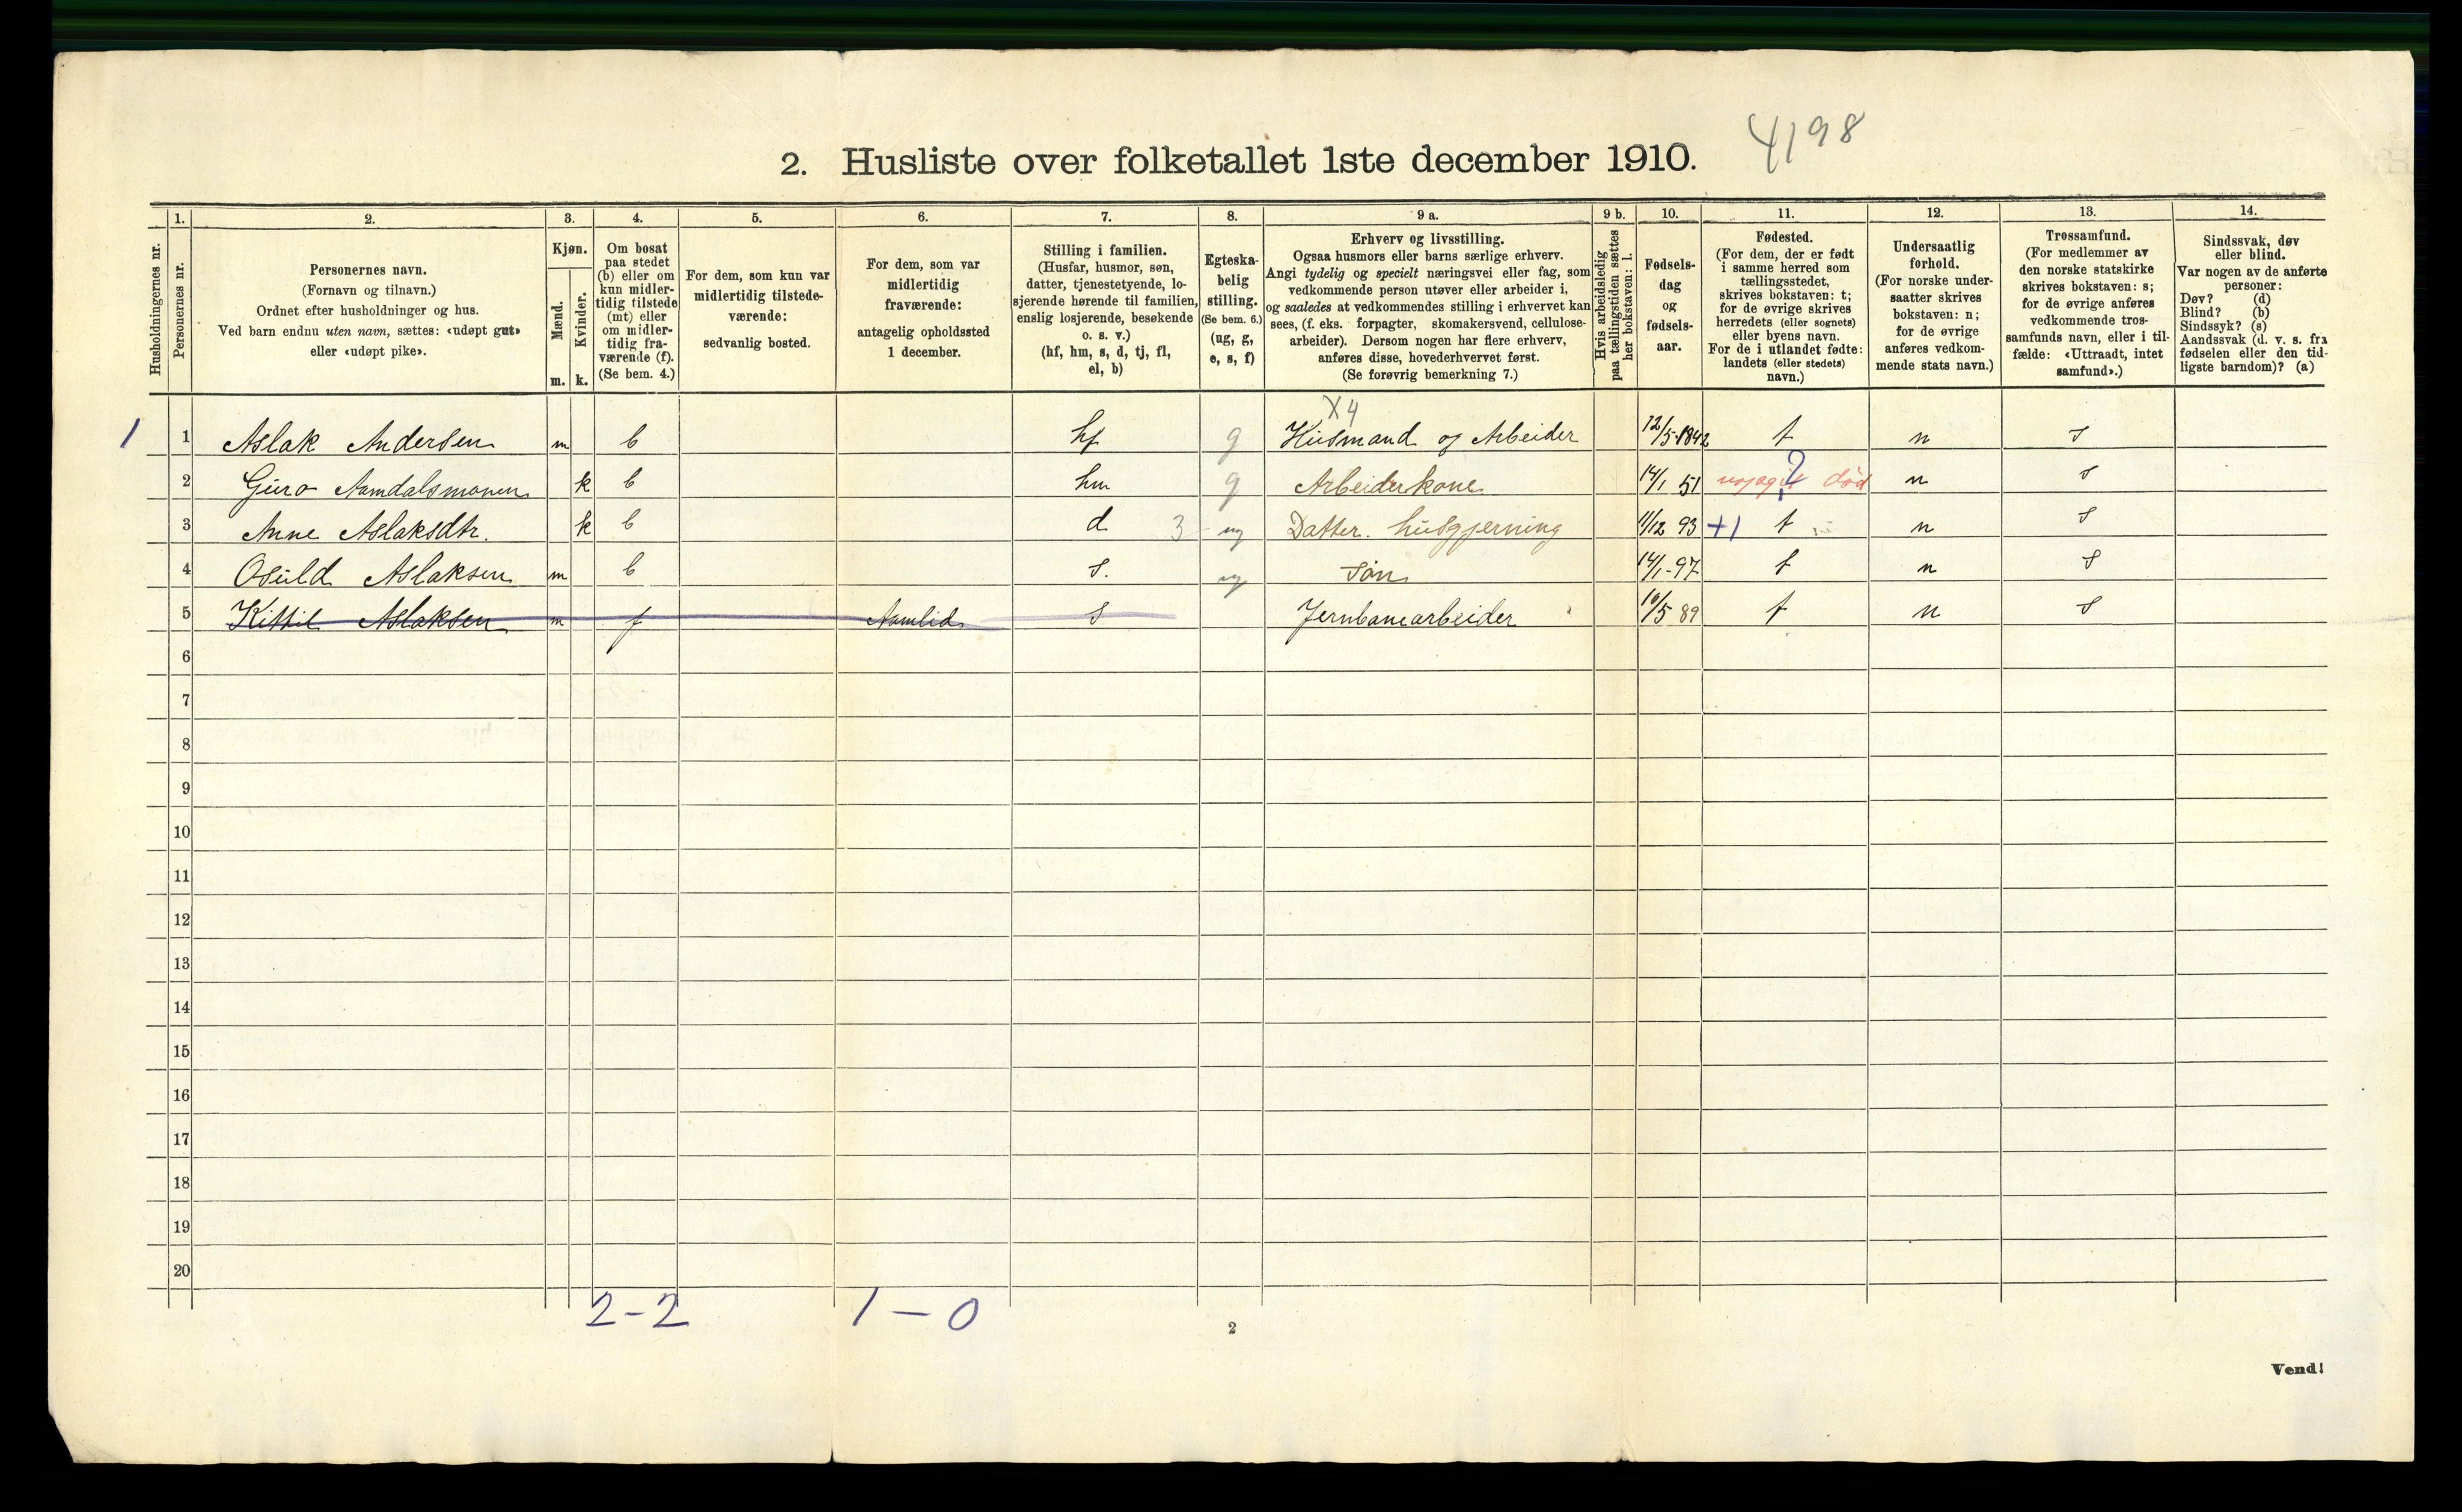 4198
2. Husliste over folketallet 1ste december 1910.
Husholdningernes nr.
1.
Personernes nr.
2.
Personernes navn.
(Fornavn og tilnavn.)
Ordnet efter husholdninger og hus.
Ved barn endnu uten navn, sættes: «udøpt gut»
eller «udøpt pike».
3.
Kjøn.
Mænd.
Kvinder.
m. k.
4.
Om bosat
paa stedet
(b) eller om
kun midler-
tidig tilstede
(mt) eller
om midler-
tidig fra-
værende (f).
(Se bem. 4.)
5.
For dem, som kun var
midlertidig tilstede-
værende:
sedvanlig bosted.
6.
For dem, som var
midlertidig
fraværende:
antagelig opholdssted
1 december.
7.
Stilling i familien.
(Husfar, husmor, søn,
datter, tjenestetyende, lo-
sjerende hørende til familien,
enslig losjerende, besøkende
o. s. v.)
(hf, hm, s, d, tj, fl,
el, b)
8.
Egteska-
belig
stilling.
(Se bem. 6.)
(ug, g,
e, s, f)
9 a.
Erhverv og livsstilling.
Ogsaa husmors eller barns særlige erhverv.
Angi tydelig og specielt næringsvei eller fag, som
vedkommende person utøver eller arbeider i,
og saaledes at vedkommendes stilling i erhvervet kan
sees, (f. eks. forpagter, skomakersvend, cellulose-
arbeider). Dersom nogen har flere erhverv,
anføres disse, hovederhvervet først.
(Se forøvrig bemerkning 7.)
9 b.
Hvis arbeidsledig
paa tællingstiden sættes
her bokstaven: l.
10.
Fødsels-
dag
og
fødsels-
aar.
11.
Fødested.
(For dem, der er født
i samme herred som
tællingsstedet,
skrives bokstaven: t;
for de øvrige skrives
herredets (eller sognets)
eller byens navn.
For de i utlandet fødte:
landets (eller stedets)
navn.)
12.
Undersaatlig
forhold.
(For norske under-
saatter skrives
bokstaven: n;
for de øvrige
anføres vedkom-
mende stats navn.)
13.
Trossamfund.
(For medlemmer av
den norske statskirke
skrives bokstaven: s;
for de øvrige anføres
vedkommende tros-
samfunds navn, eller i til-
fælde: «Uttraadt, intet
samfund».)
14.
Sindssvak, døv
eller blind.
Var nogen av de anførte
personer:
Døv? (d)
Blind? (b)
Sindssyk? (s)
Aandssvak (d. v. s. fra
fødselen eller den tid-
ligste barndom)? (a)
X4
1 1 Aslak Andersen m b hf g Husmand og Arbeider 12/5-1842 t n s
2 Guro Aamdalsmonen k b hm g Arbeiderkone 14/1 51 ? død n s
3 Anne Aslaksdtr. k b d 3 ug Datter. husgjerning 11/12 93 +1 t n s
4 Osuld Aslaksen m b s. ug søn 14/1-97 t n s
5 Kittil Aslaksen m f Aamlid s Jernbanearbeider 16/5 89 t n s
6
7
8
9
10
11
12
13
14
15
16
17
18
19
20
2-2 1-0
2
Vend!